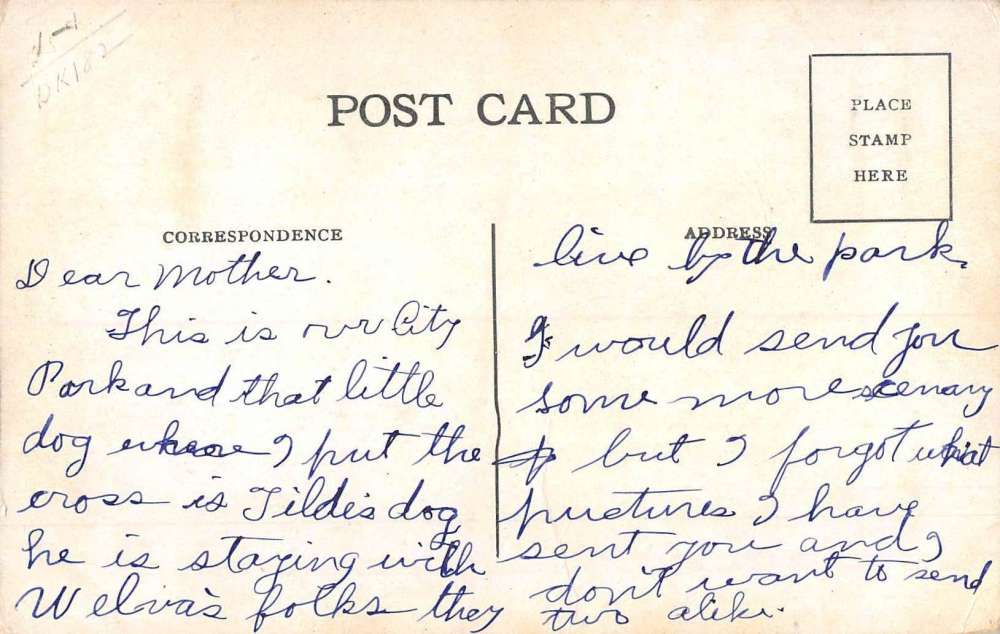 POST CARD
PLACE
STAMP
HERE
CORRESPONDENCE
Dear Mother.
This is our City
Park and that little
dog where I put the
cross is Tildes dog
he is staying with
Welva's folks they
ADDRESS
live by the park.
I would send you
some more scenary
but I forgot what
puctures I have
sent you and I
don't want to send
two alike.